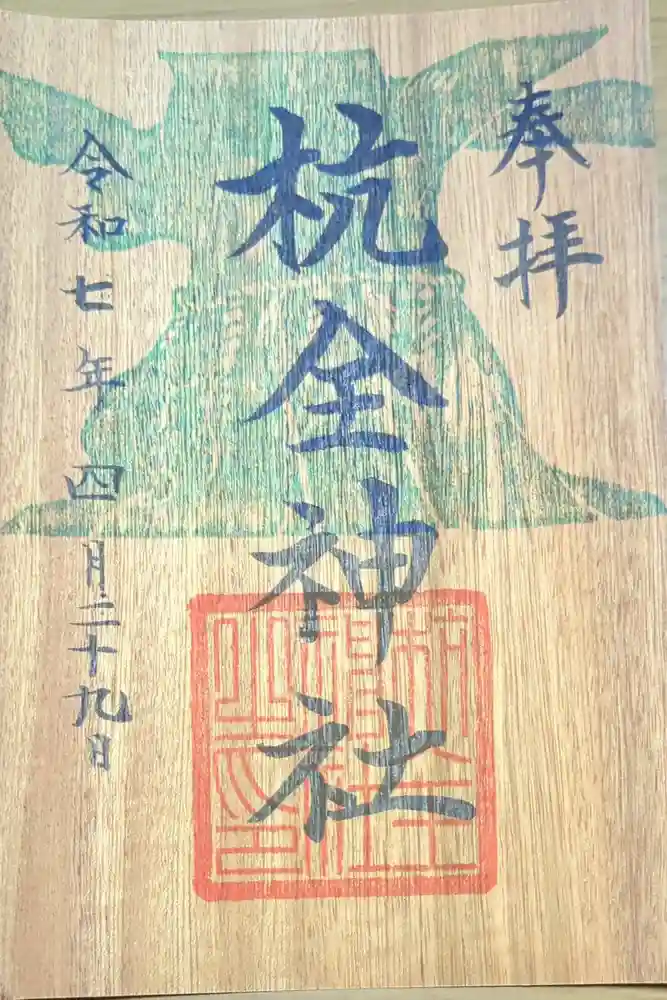 奉拝
杭全神社
令和七年四月二十九日